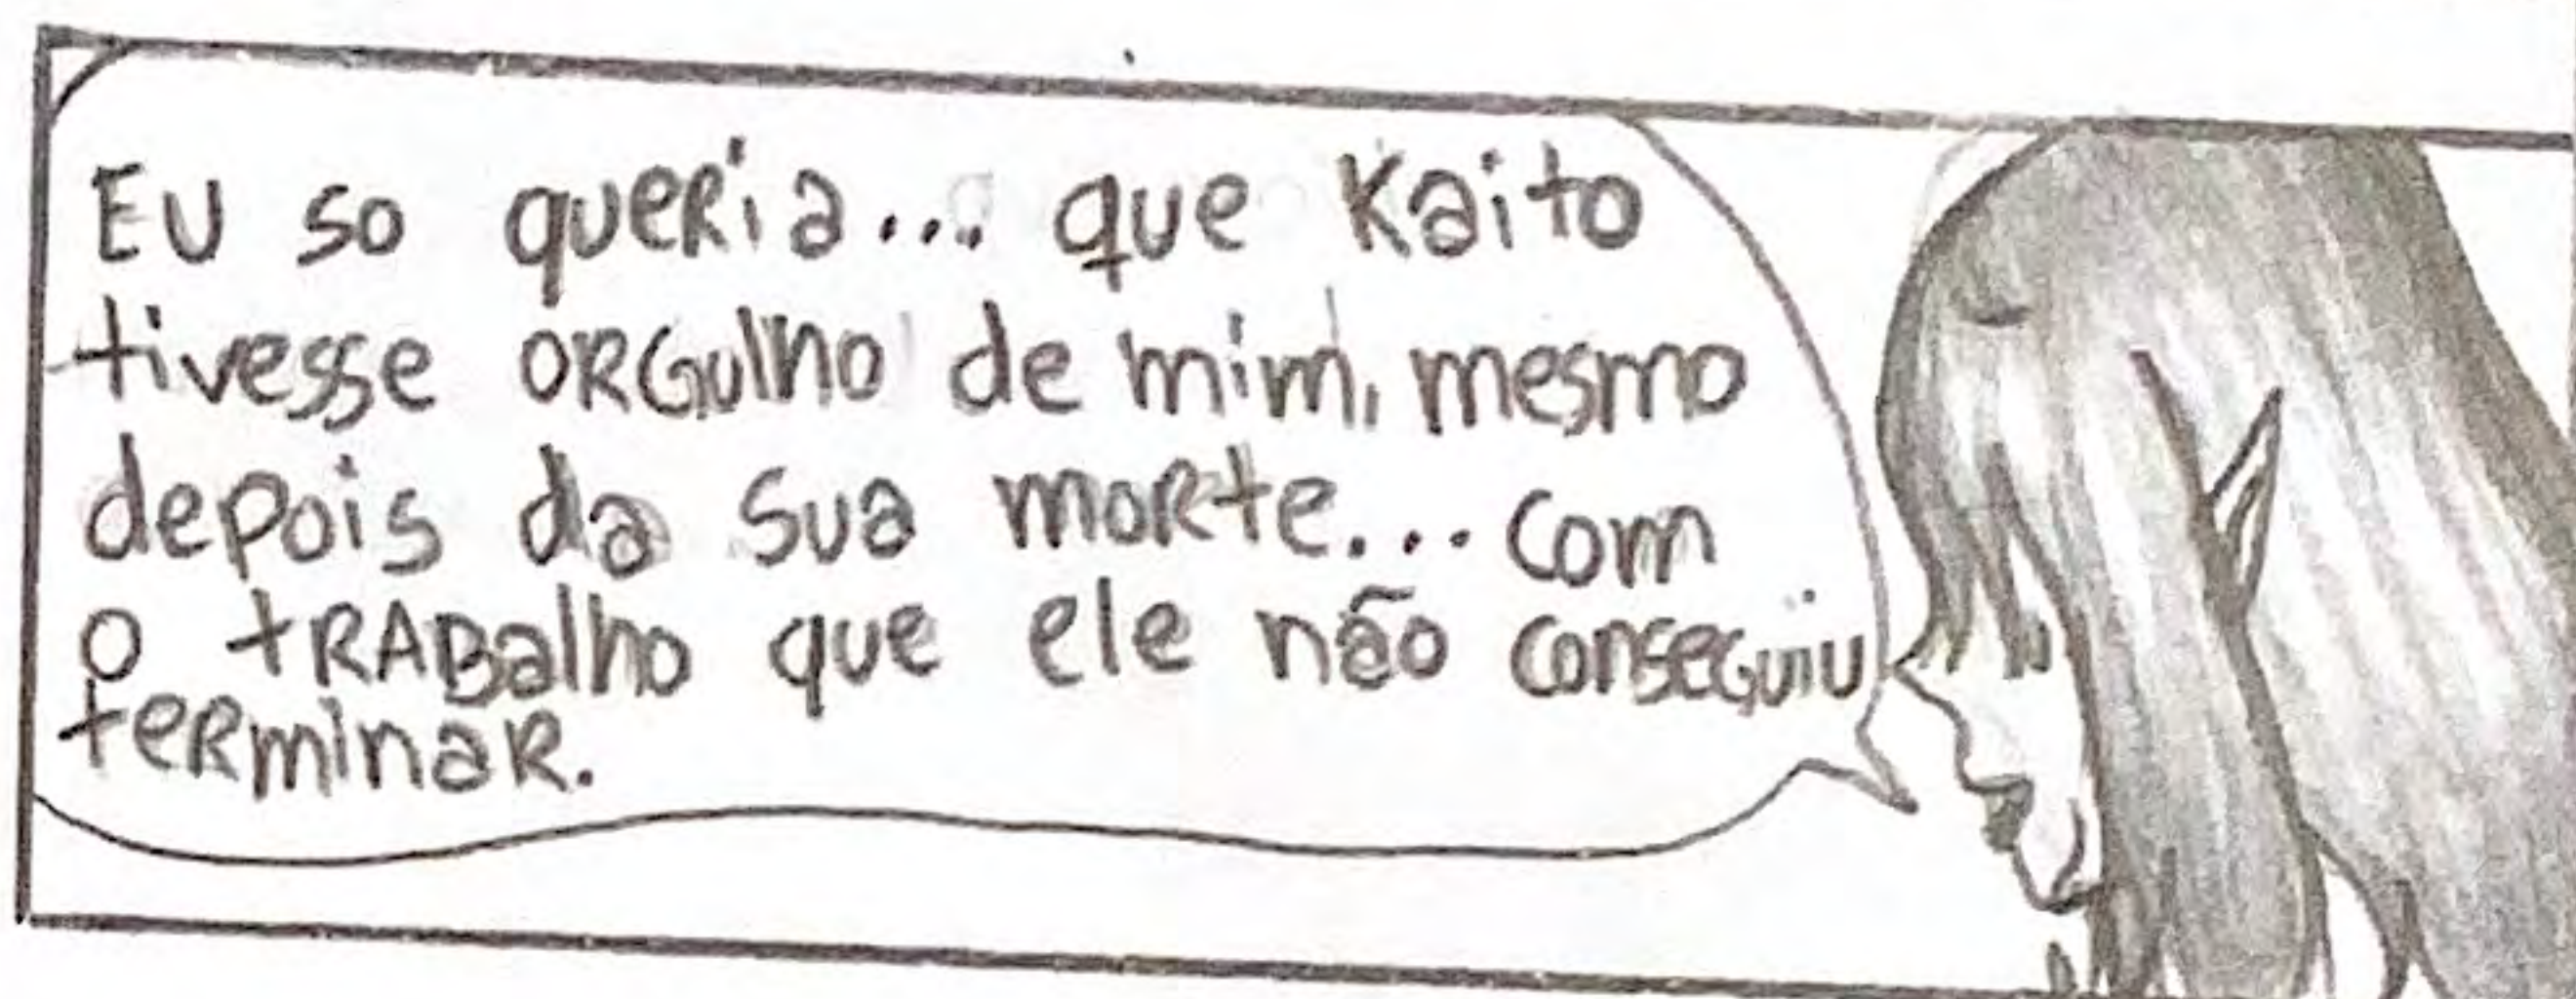 Eu so queria... que Kaito
tivesse orgulho de mim, mesmo
depois da sua morte... com
o trabalho que ele não conseguiu
terminar.